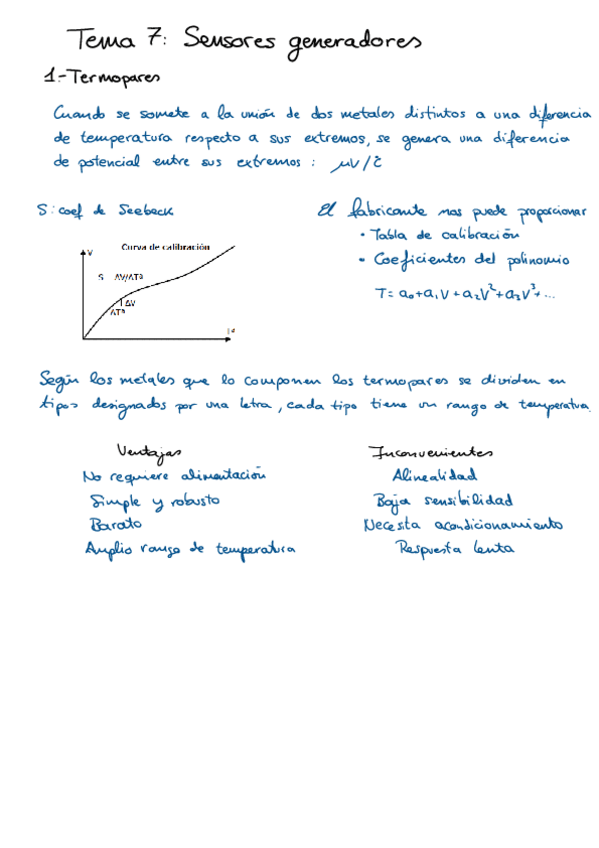 Tema 7: Sensores generadores
1.- Termopares
Cuando se somete a la unión de dos metales distintos a una diferencia
de temperatura respecto a sus extremos, se genera una diferencia
de potencial entre sus extremos: μV/℃
S: coef de Seebeck
Curva de calibración
V
S ΔV/ΔTª
ΔV
ΔTª
Tª
El fabricante nos puede proporcionar
• Tabla de calibración
• Coeficientes del polinomio
T = a₀+a₁V+a₂V²+a₃V³+...
Según los metales que lo componen los termopares se dividen en
tipos designados por una letra, cada tipo tiene un rango de temperatura.
Ventajas
No requiere alimentación
Simple y robusto
Barato
Amplio rango de temperatura
Inconvenientes
Alinealidad
Baja sensibilidad
Necesta acondicionamiento
Respuesta lenta